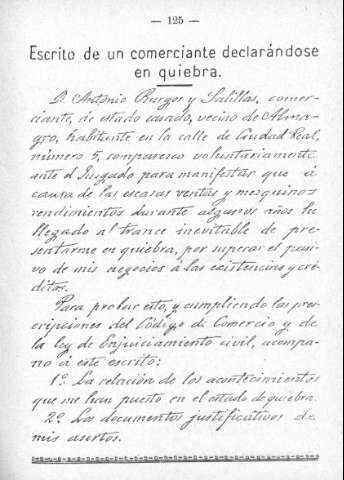 — 125 —
Escrito de un comerciante declarándose
en quiebra.
D. Antonio Burgos y Salillas, comer-
ciante, de estado casado, vecino de Alma-
gro, habitante en la calle de Ciudad Real,
número 5, comparezco voluntariamente
ante el Juzgado para manifestar que á
causa de las escasas ventas y mezquinos
rendimientos durante algunos años he
llegado al trance inevitable de pre-
sentarme en quiebra, por superar el pasi-
vo de mis negocios á las existencias y cré-
ditos.
Para probar esto, y cumpliendo las pres-
cripciones del Código de Comercio y de
la ley de Enjuiciamiento civil, acompa-
ño á este escrito:
1º. La relación de los acontecimientos
que me han puesto en el estado de quiebra.
2º. Los documentos justificativos de
mis asertos.